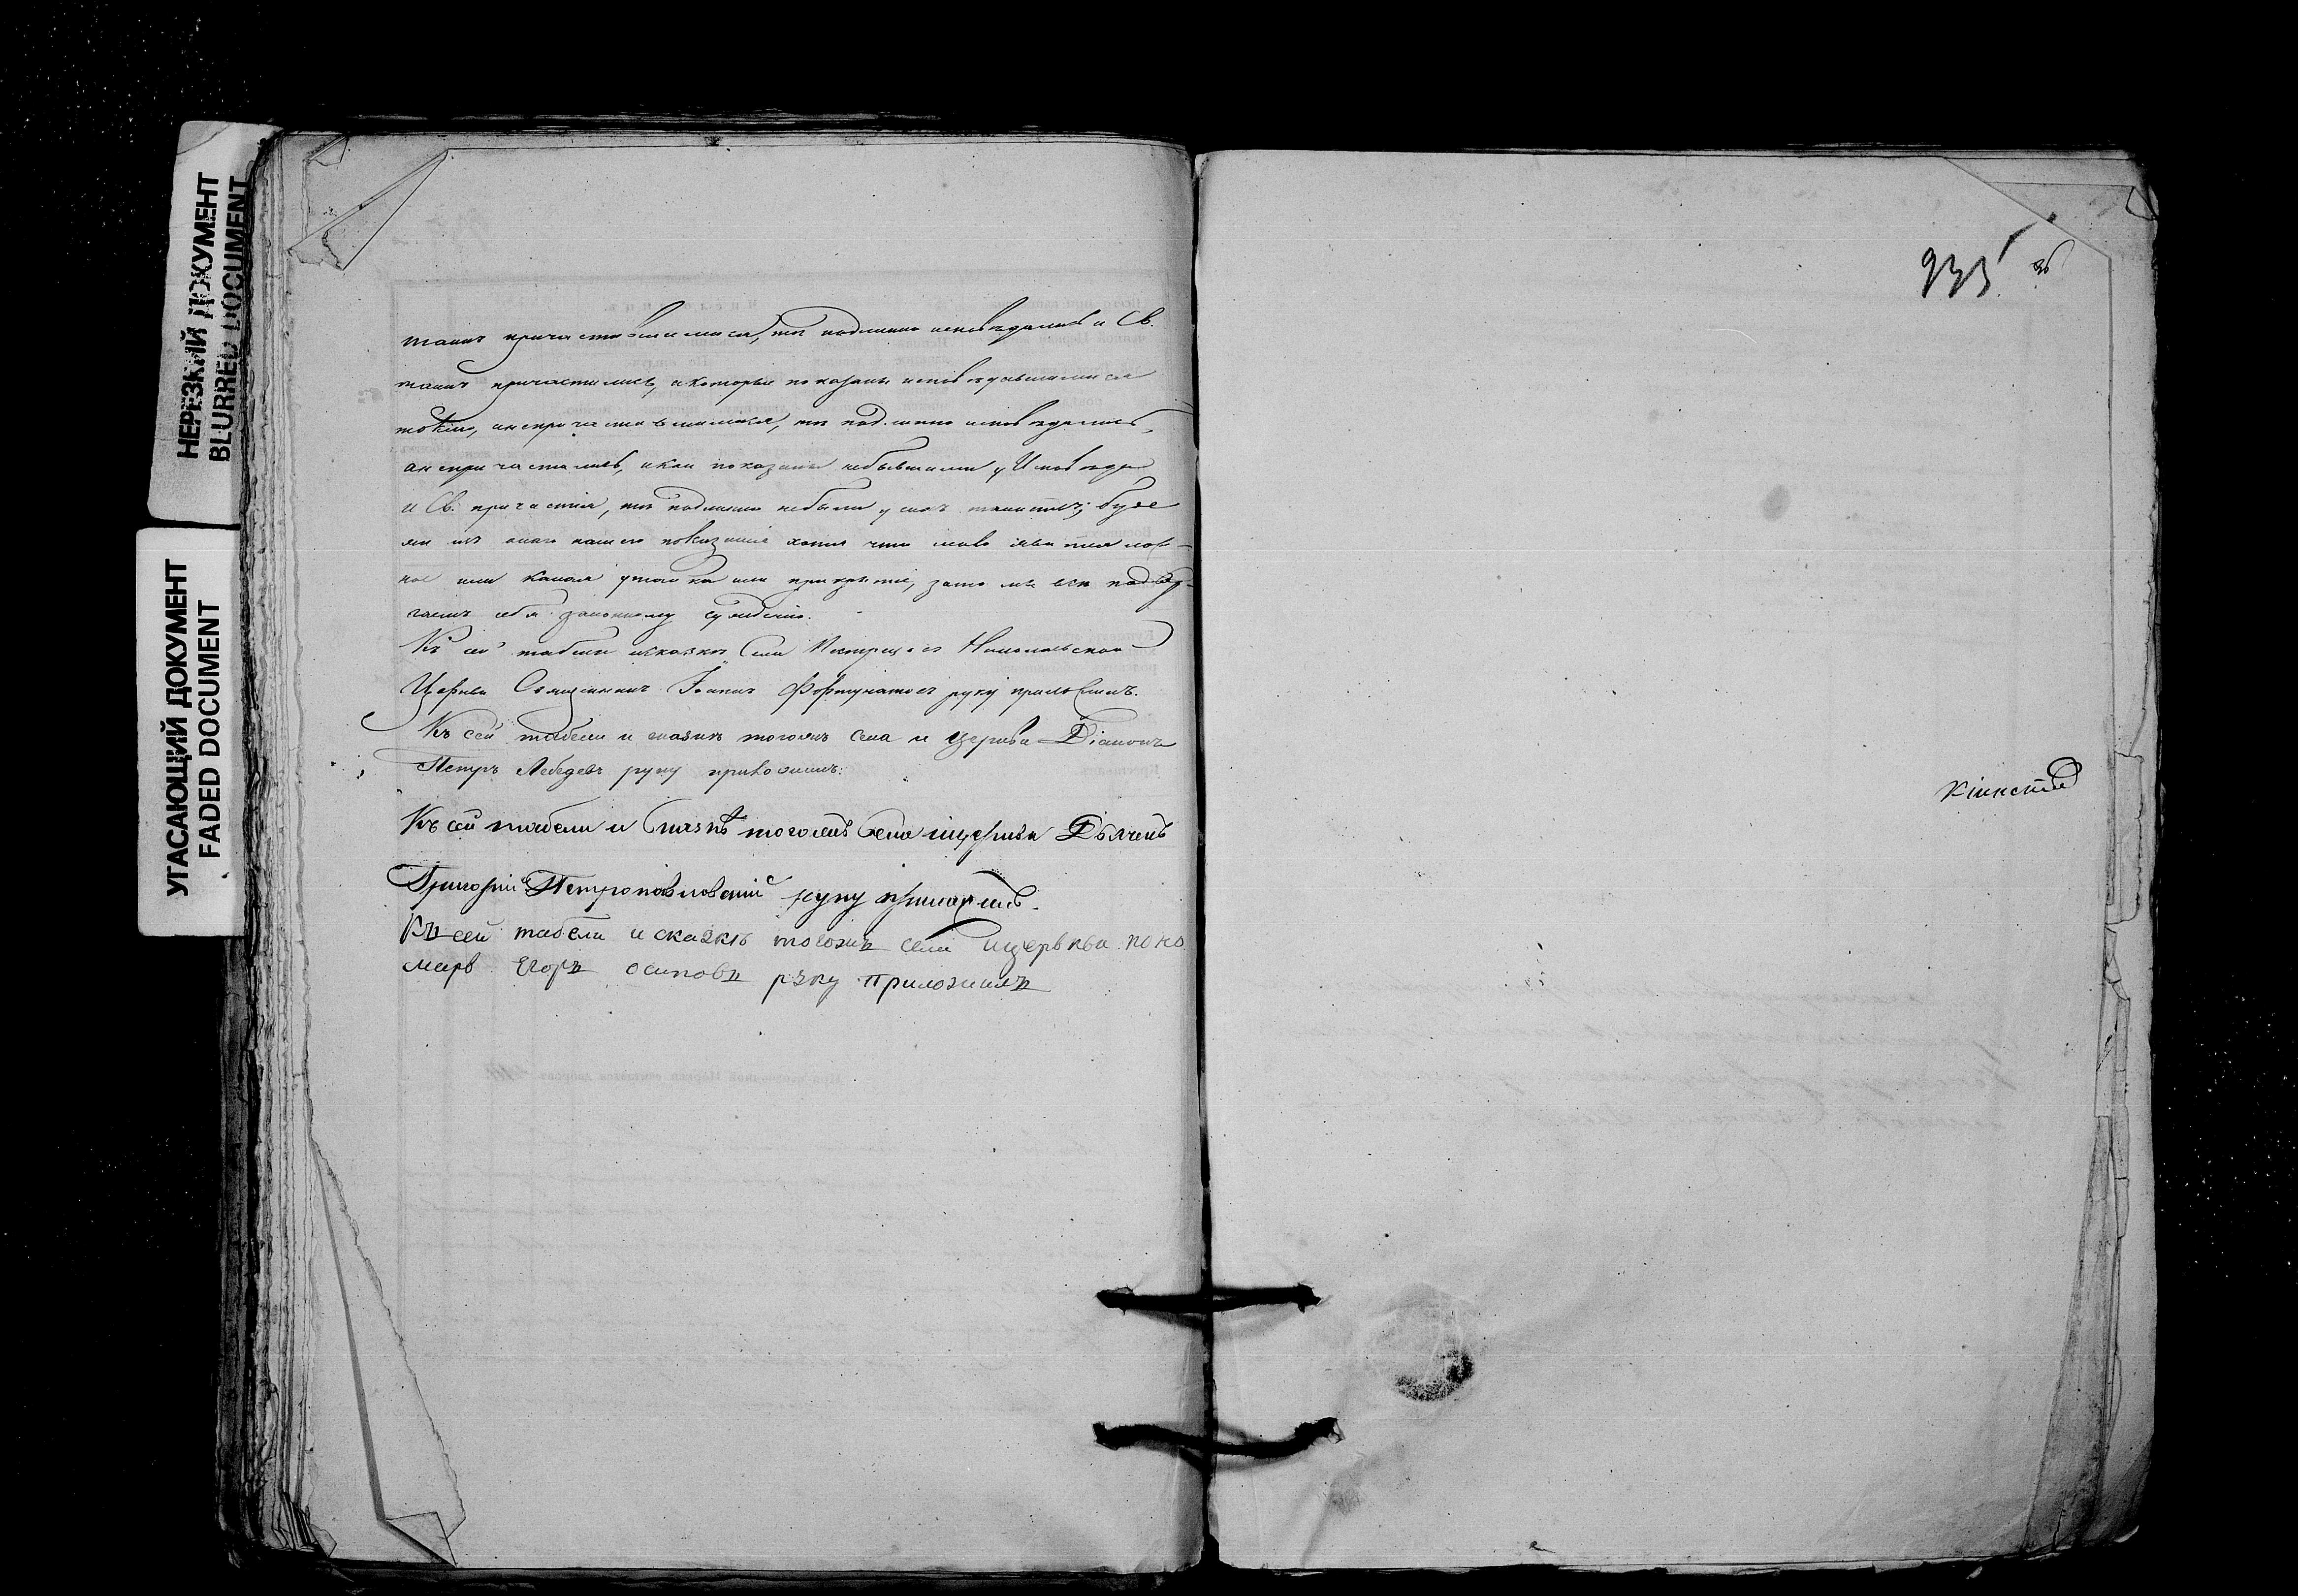 НЕРЕЗКИЙ ДОКУМЕНТ
BLURRED DOCUMENT
УГАСАЮЩИЙ ДОКУМЕНТ
FADED DOCUMENT
таинъ причастившимися, тѣ подлинно исповѣдались и Св.
таинъ причастились, а которые показаны исповѣдавшимися
токмо, а непричастившимися, тѣ подлинно исповѣдались,
а непричастились, а кои показаны небывшими у Исповѣди
и Св. причастія, тѣ подлинно небыли у сихъ таинствъ; буде
же въ показаніи хотя что либо явится лож-
ное или какая утайка или прикрытіе, зато мы всѣ подвер-
гаемъ себя законному сужденію.
Къ сей табели и сказкѣ Села Николаевской
Церкви Священникъ Іоаннъ Фортунатовъ руку приложилъ.
Къ сей табели и сказкѣ тогожъ села и церкви Діаконъ
Петръ Лебедевъ руку приложилъ.
Къ сей табели и Сказкѣ тогожъ Села и церкви Дьячекъ
Григорій Петропавловскій руку приложилъ.
Къ сей табели и сказкѣ тогожъ села и церкви поно
марь Егоръ осиповъ руку приложилъ
935